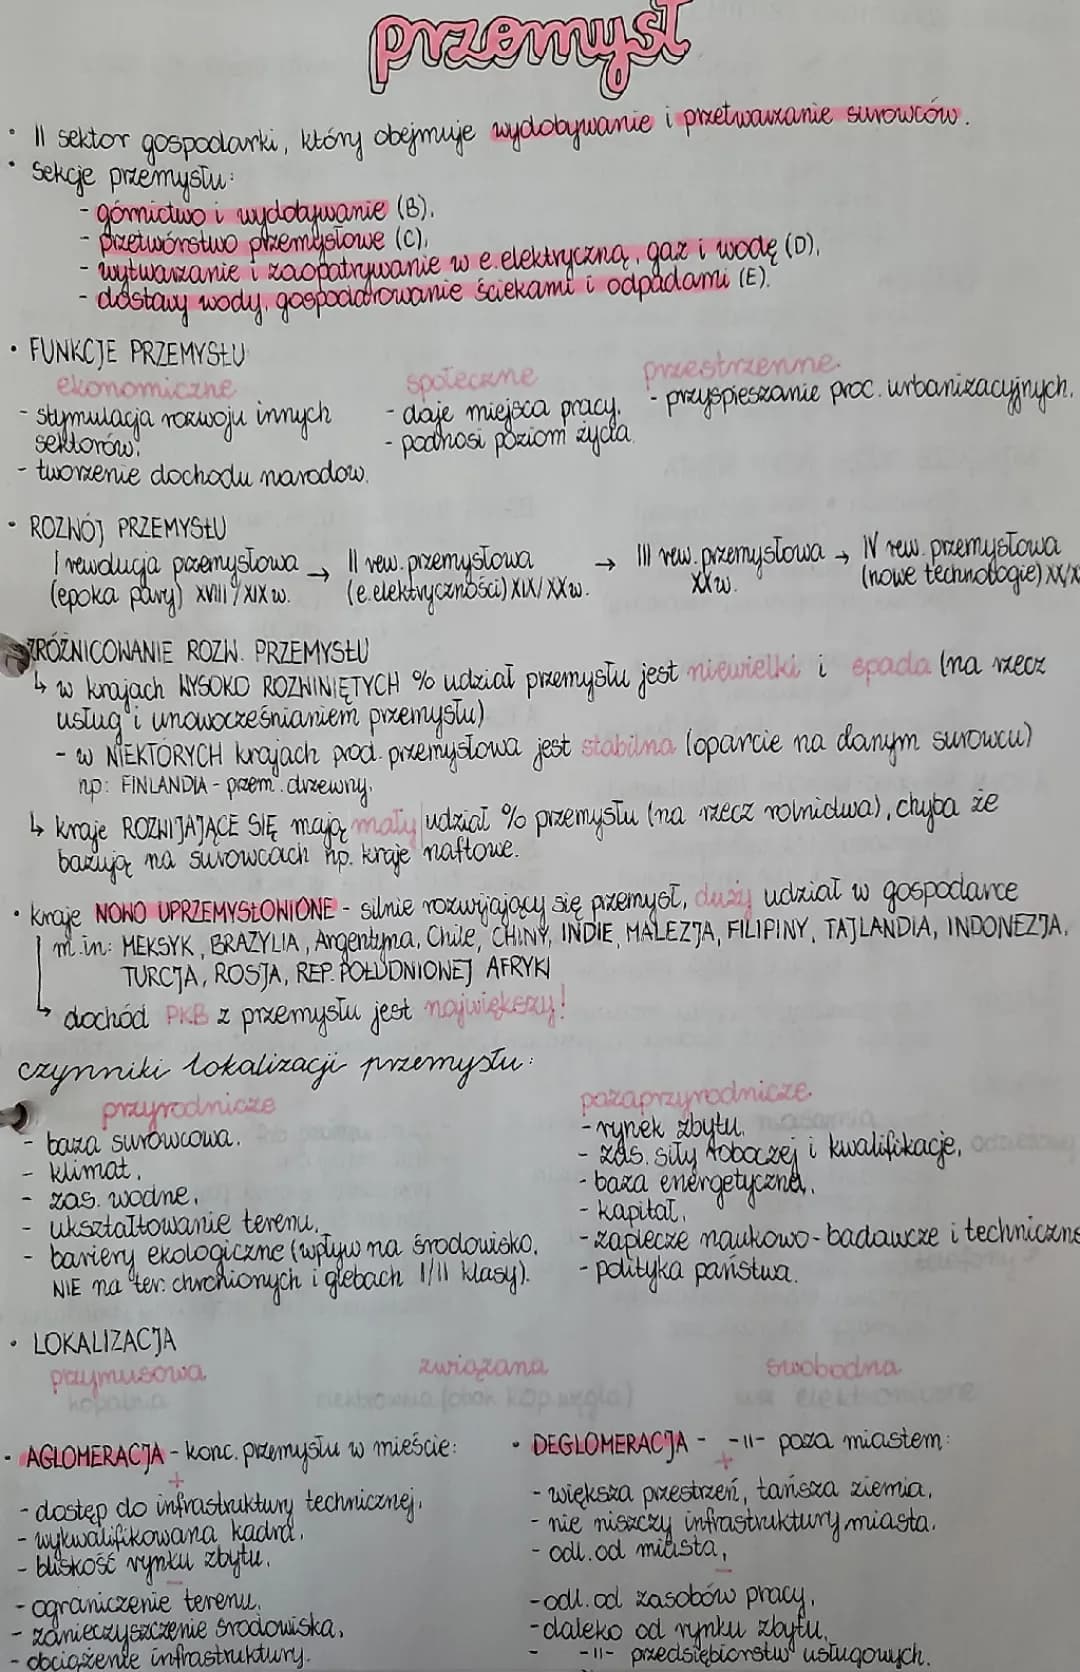 przemysł
• II sektor gospodarki, który obejmuje wydobywanie i przetwarzanie surowców.
• Sekcje przemysłu:
- górnictwo i wydobywanie (B),
- przetwórstwo przemysłowe (C),
- wytwarzanie i zaopatrywanie w e.elektryczną, gaz i wodę (D),
- dostawy wody, gospodarowanie ściekami i odpadami (E).
• FUNKCJE PRZEMYSŁU
ekonomiczne
- stymulacja rozwoju innych
sektorów.
- tworzenie dochodu narodow.
społeczne
- daje miejsca pracy.
- podnosi poziom życia.
przestrzenne.
- przyspieszanie proc. urbanizacyjnych.
• ROZWÓJ PRZEMYSŁU
I rewolucja przemysłowa → II rew. przemysłowa → III rew. przemysłowa → IV rew. przemysłowa
(epoka pary) XVIII/XIX w. (e.elektryczności) XIX/XX w. XX w. (nowe technologie) XX/X
ZRÓŻNICOWANIE ROZW. PRZEMYSŁU
↳ w krajach WYSOKO ROZWINIĘTYCH % udział przemysłu jest niewielki i spada (na rzecz
usług i unowocześnianiem przemysłu)
- w NIEKTÓRYCH krajach prod. przemysłowa jest stabilna (oparcie na danym surowcu)
np: FINLANDIA - przem. drzewny.
↳ kraje ROZWIJAJĄCE SIĘ mają mały udział % przemysłu (na rzecz rolnictwa), chyba że
bazują na surowcach np. kraje naftowe.
• kraje NOWO UPRZEMYSŁOWIONE - silnie rozwijający się przemysł, duży udział w gospodarce
m.in: MEKSYK, BRAZYLIA, Argentyna, Chile, CHINY, INDIE, MALEZJA, FILIPINY, TAJLANDIA, INDONEZJA,
TURCJA, ROSJA, REP. POŁUDNIOWEJ AFRYKI
↳ dochód PKB z przemysłu jest największy!
czynniki lokalizacji przemysłu:
przyrodnicze
- baza surowcowa.
- klimat,
- zas. wodne,
- ukształtowanie terenu,
- bariery ekologiczne (wpływ na środowisko,
NIE na ter. chronionych i glebach I/II klasy).
pozaprzyrodnicze.
- rynek zbytu,
- zas. siły roboczej i kwalifikacje,
- baza energetyczna,
- kapitał,
- zaplecze naukowo-badawcze i techniczne
- polityka państwa.
• LOKALIZACJA
przymusowa związana swobodna
kopalnia elektrownia (obok kop węgla)
• AGLOMERACJA - konc. przemysłu w mieście:
+
- dostęp do infrastruktury technicznej,
- wykwalifikowana kadra,
- bliskość rynku zbytu.
-
- ograniczenie terenu,
- zanieczyszczenie środowiska,
- obciążenie infrastruktury.
• DEGLOMERACJA - -II- poza miastem:
+
- większa przestrzeń, tańsza ziemia,
- nie niszczy infrastruktury miasta.
- odl. od miasta,
-
- odl. od zasobów pracy,
- daleko od rynku zbytu,
- -II- przedsiębiorstw usługowych.